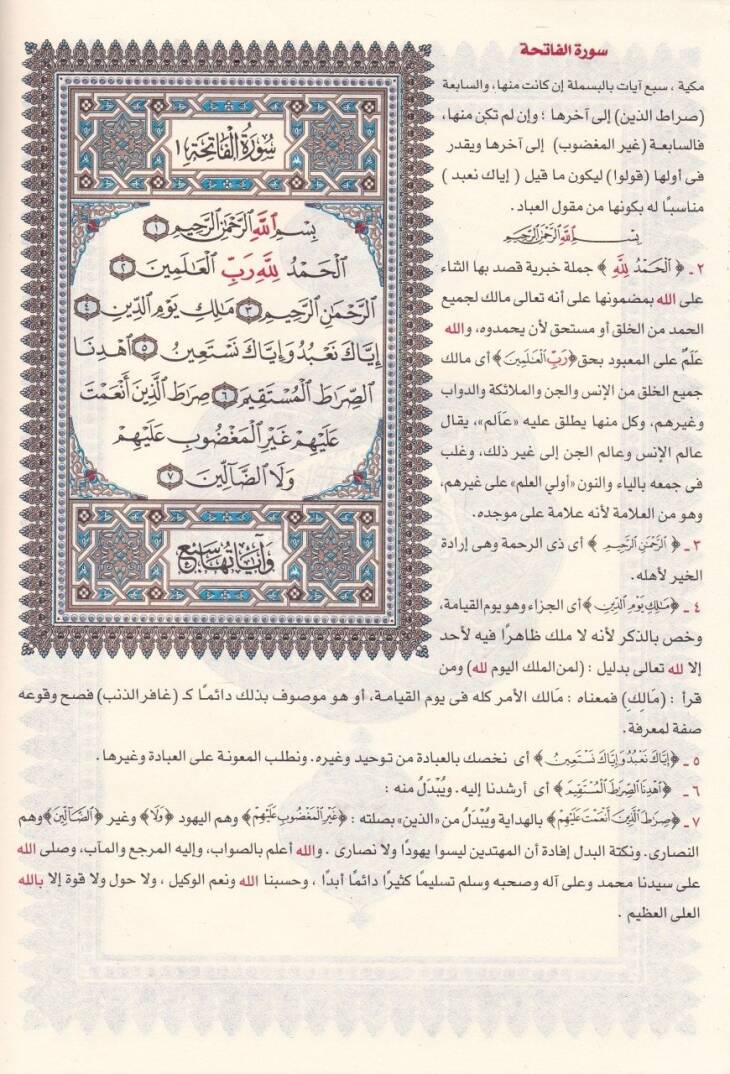 سورة الفاتحة
مكية ، سبع آيات بالبسملة إن كانت منها، والسابعة
(صراط الذين) إلى آخرها ؛ وإن لم تكن منها،
فالسابعـة (غير المغضوب) إلى آخرها ويقدر
فى أولها (قولوا) ليكون ما قيل ( إياك نعبد )
مناسبًا له بكونها من مقول العباد.
بِسْمِ اللَّهِ الرَّحْمَٰنِ الرَّحِيمِ
٢ ـ ﴿ الْحَمْدُ لِلَّهِ ﴾ جملة خبرية قصد بها الثناء
على الله بمضمونها على أنه تعالى مالك لجميع
الحمد من الخلق أو مستحق لأن يحمدوه، والله
عَلَمٌ على المعبود بحق﴿رَبِّ الْعَالَمِينَ﴾ أى مالك
جميع الخلق من الإنس والجن والملائكة والدواب
وغيرهم، وكل منها يطلق عليه «عـَالم»، يقال
عالم الإنس وعالم الجن إلى غير ذلك، وغلب
فى جمعه بالياء والنون «أولي العلم» على غيرهم،
وهو من العلامة لأنه علامة على موجده.
٣ ـ ﴿ الرَّحْمَٰنِ الرَّحِيمِ ﴾ أى ذى الرحمة وهى إرادة
الخير لأهله.
٤ ـ ﴿مَالِكِ يَوْمِ الدِّينِ﴾ أى الجزاء وهو يوم القيامة،
وخص بالذكر لأنه لا ملك ظاهرًا فيه لأحد
إلا لله تعالى بدليل : (لمن الملك اليوم لله) ومن
قرأ : (مَالِكِ) فمعناه : مَالك الأمر كله فى يوم القيامـة، أو هو موصوف بذلك دائمًا كـ (غافر الذنب) فصح وقوعه
صفة لمعرفة.
٥ ـ ﴿إِيَّاكَ نَعْبُدُ وَإِيَّاكَ نَسْتَعِينُ﴾ أى نخصك بالعبادة من توحيد وغيره. ونطلب المعونة على العبادة وغيرها.
٦ ـ ﴿اهْدِنَا الصِّرَاطَ الْمُسْتَقِيمَ﴾ أى أرشدنا إليه. ويُبْدَلُ منه :
٧ ـ ﴿صِرَاطَ الَّذِينَ أَنْعَمْتَ عَلَيْهِمْ﴾ بالهداية ويُبْدَلُ من «الذين» بصلته : ﴿غَيْرِ الْمَغْضُوبِ عَلَيْهِمْ﴾ وهم اليهود ﴿وَلَا﴾ وغير ﴿الضَّالِّينَ﴾ وهم
النصارى. ونكتة البدل إفادة أن المهتدين ليسوا يهودًا ولا نصارى . والله أعلم بالصواب، وإليه المرجع والمآب، وصلى الله
على سيدنا محمد وعلى آله وصحبه وسلم تسليمًا كثيرًا دائمًا أبدًا ، وحسبنا الله ونعم الوكيل ، ولا حول ولا قوة إلا بالله
العلى العظيم .
سُورَةُ الْفَاتِحَةِ ١
بِسْمِ اللَّهِ الرَّحْمَٰنِ الرَّحِيمِ ١
الْحَمْدُ لِلَّهِ رَبِّ الْعَالَمِينَ ٢
الرَّحْمَٰنِ الرَّحِيمِ ٣ مَالِكِ يَوْمِ الدِّينِ ٤
إِيَّاكَ نَعْبُدُ وَإِيَّاكَ نَسْتَعِينُ ٥ اهْدِنَا
الصِّرَاطَ الْمُسْتَقِيمَ ٦ صِرَاطَ الَّذِينَ أَنْعَمْتَ
عَلَيْهِمْ غَيْرِ الْمَغْضُوبِ عَلَيْهِمْ
وَلَا الضَّالِّينَ ٧
وَآيَاتُهَا سَبْعٌ